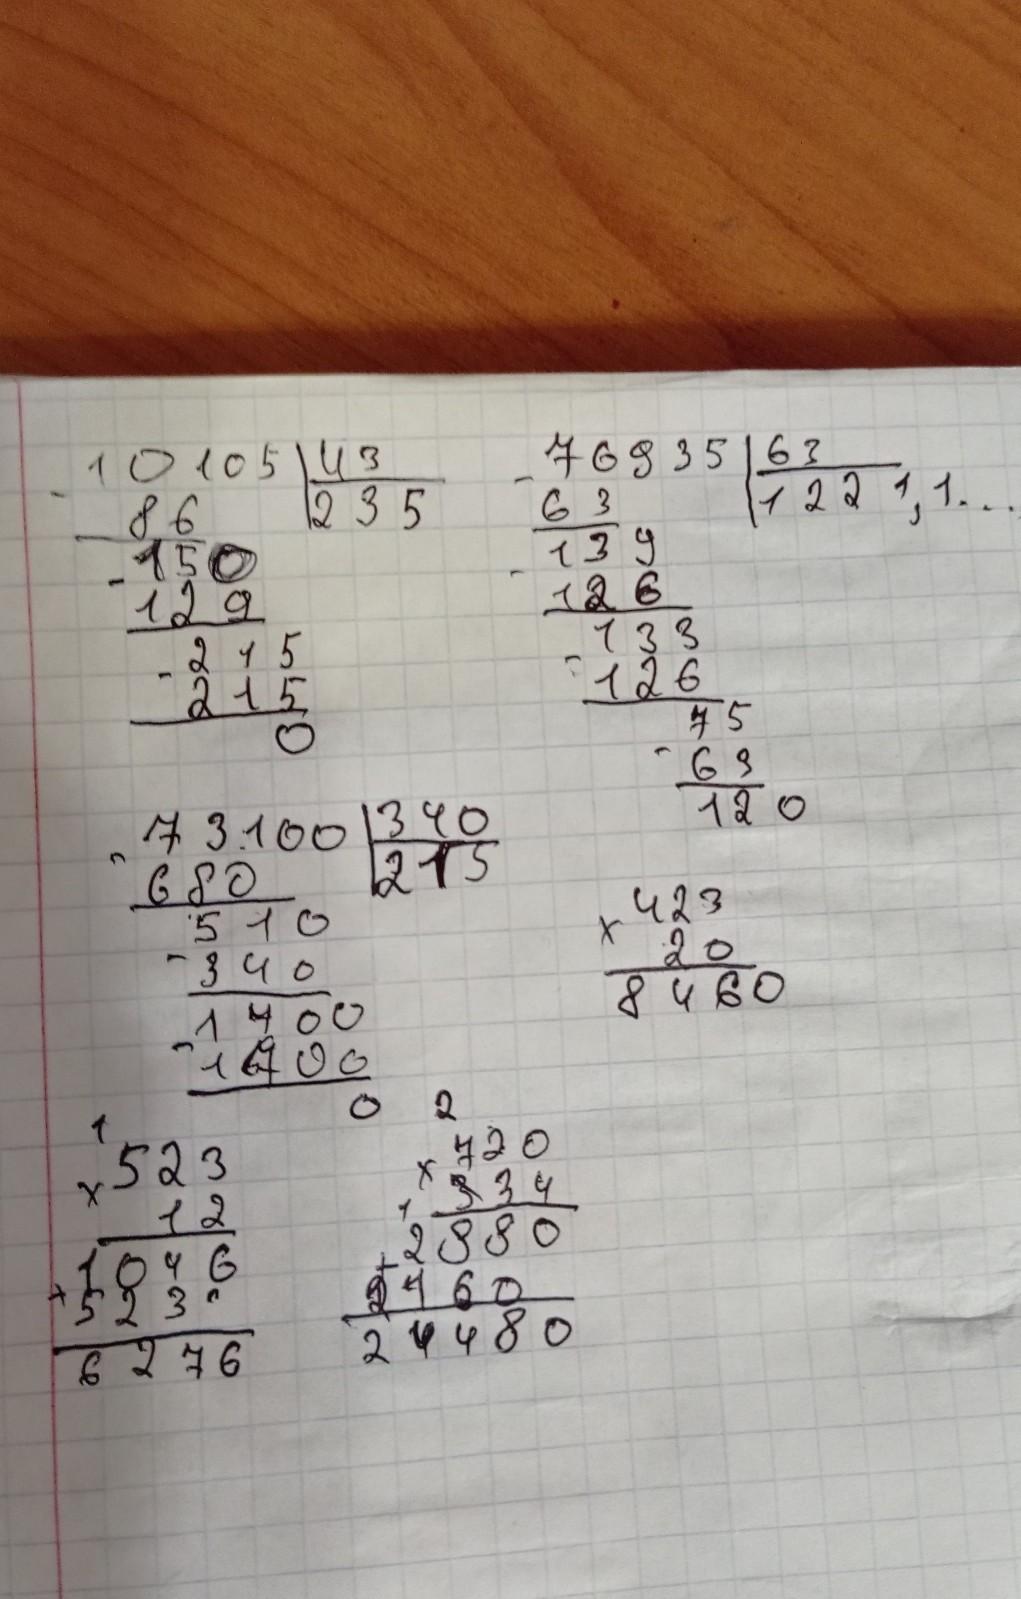 10105 | 43
- 86 | 235
150
- 129
215
- 215
0
76935 | 63
- 63 | 1221,1...
139
- 126
133
- 126
75
- 63
120
73100 | 340
- 680 | 215
510
- 340
1700
- 1700
0
423
x 20
8460
1
523
x 12
1046
+ 523
6276
2
720
x 34
1
2880
+ 2160
24480